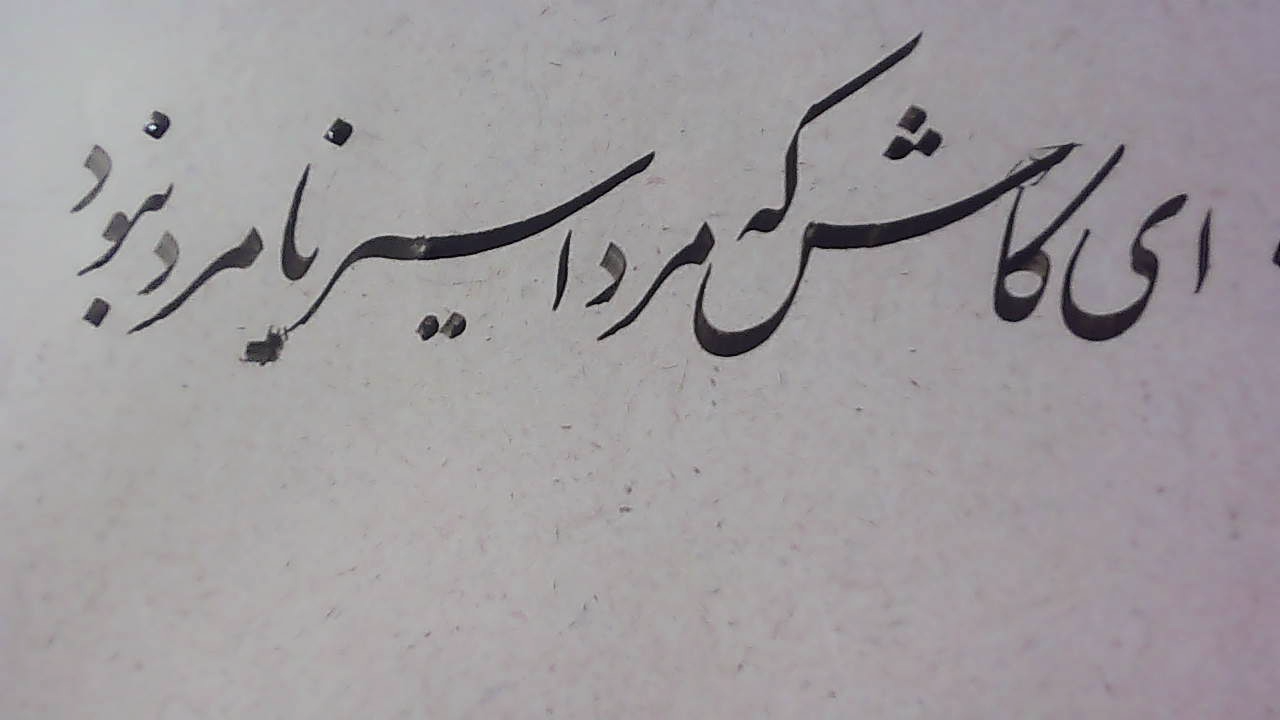 ای کاش که مرد اسیر نامرد نبود